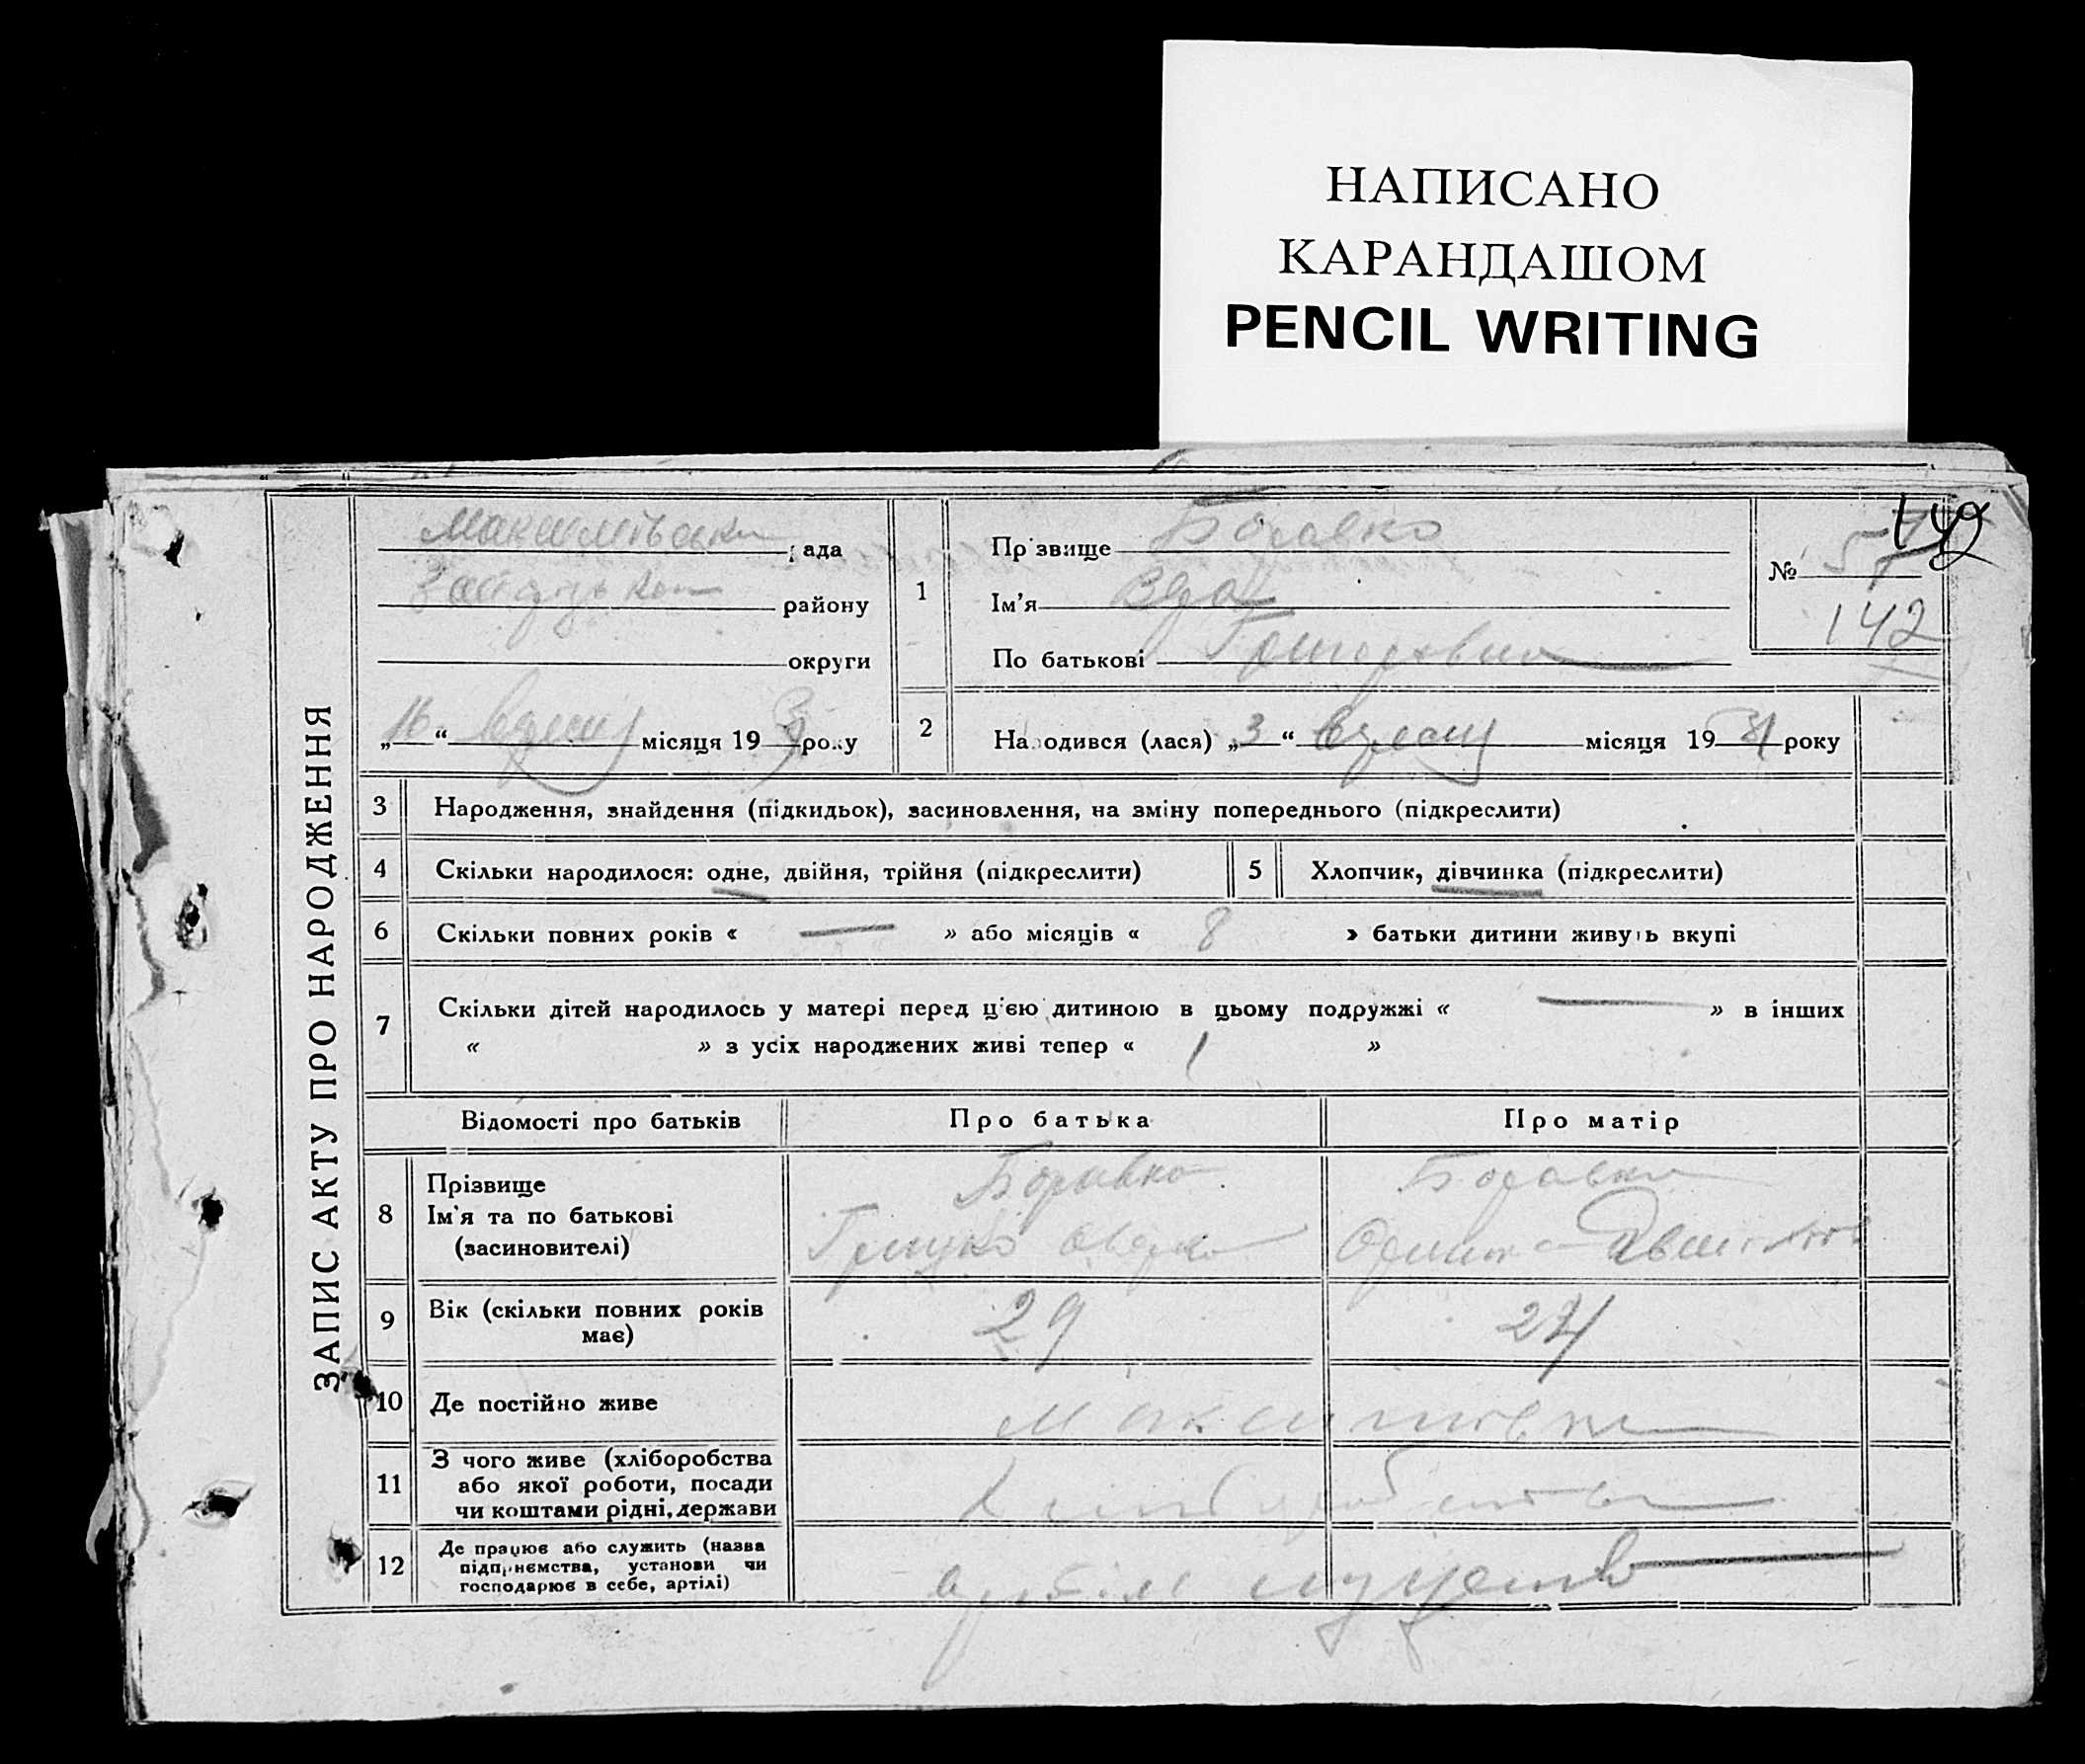 НАПИСАНО
КАРАНДАШОМ
PENCIL WRITING
ЗАПИС АКТУ ПРО НАРОДЖЕННЯ
рада
району
округи
„16“ місяця 19 року
1
Прізвище Боравко
Ім'я
По батькові Григоровна
№ 57
142
142
2
Народився (лася) „3“ місяця 1931 року
3 Народження, знайдення (підкидьок), засиновлення, на зміну попереднього (підкреслити)
4 Скільки народилося: одне, двійня, трійня (підкреслити)
5 Хлопчик, дівчинка (підкреслити)
6 Скільки повних років « — » або місяців « 8 » батьки дитини живуть вкупі
7 Скільки дітей народилось у матері перед ц'єю дитиною в цьому подружжі « — » в інших
« » з усіх народжених живі тепер « 1 »
Відомості про батьків
Про батька
Про матір
8 Прізвище
Ім'я та по батькові
(засиновителі)
Боравко
Грицко
Боравко
9 Вік (скільки повних років
має)
29
24
10 Де постійно живе
Максимовка
11 З чого живе (хліборобства
або якої роботи, посади
чи коштами рідні, держави
Хліборобство
12 Де працює або служить (назва
підприємства, установи чи
господарює в себе, артілі)